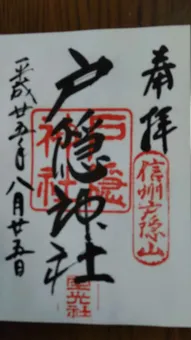 奉拝
信州戸隠山
戸隠神社
戸隠
神社
宝光社
平成廿五年八月廿五日